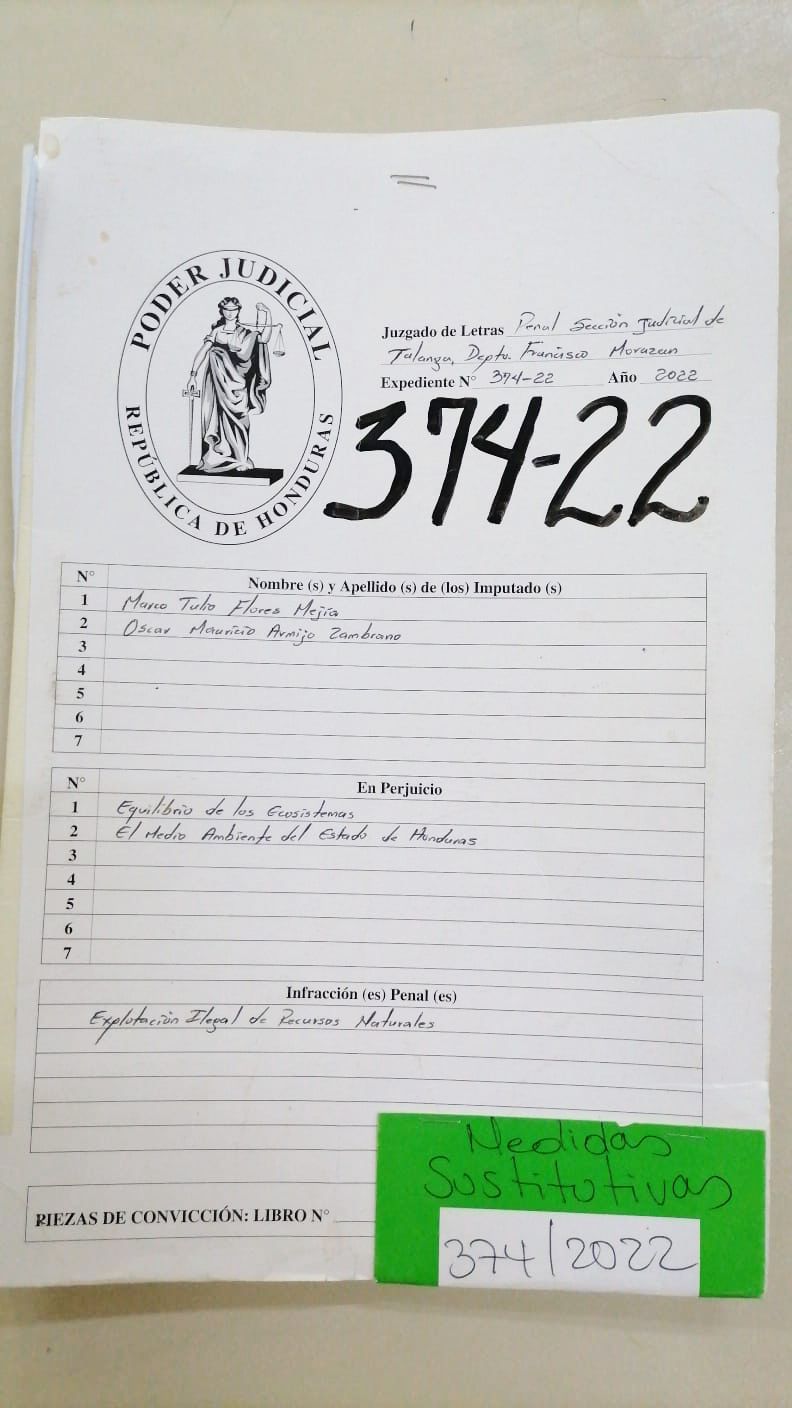 PODER JUDICIAL
REPÚBLICA DE HONDURAS
Juzgado de Letras Penal Sección Judicial de
Talanga, Depto. Francisco Morazan
Expediente N° 374-22 Año 2022
374-22
N° Nombre (s) y Apellido (s) de (los) Imputado (s)
1 Marco Tulio Flores Mejía
2 Oscar Mauricio Armijo Zambrano
3
4
5
6
7
N° En Perjuicio
1 Equilibrio de los Ecosistemas
2 El Medio Ambiente del Estado de Honduras
3
4
5
6
7
Infracción (es) Penal (es)
Explotación Ilegal de Recursos Naturales
PIEZAS DE CONVICCIÓN: LIBRO N°
Medidas
Sustitutivas
374/2022